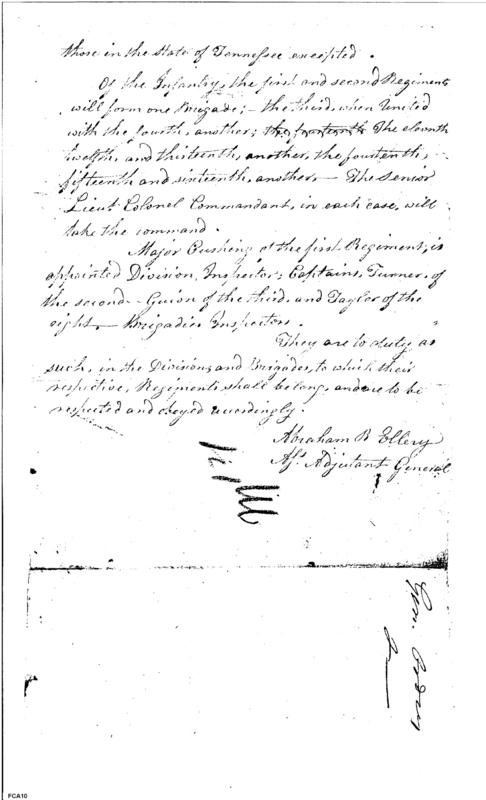 those in the State of Tennessee excepted.
Of the Infantry, the first and second Regiments
will form one Brigade; - the third, when United
with the fourth, another; the fourteenth The eleventh
twelfth, and thirteenth, another, the fourteenth,
fifteenth and sixteenth, another - The Senior
Lieut. Colonel Commandant, in each case, will
take the command.
Major Cushing of the first Regiment, is
appointed Division Inspector, Captains, Turner, of
the second - Guion of the third, and Taylor of the
eight - Brigadier Inspectors.
They are to duty as
such, in the Divisions and Brigades, to which their
respective, Regiments shall belong, and are to be
respected and obeyed accordingly.
Abraham R Ellery
Adjutant General
Gen. Orders
FCA10